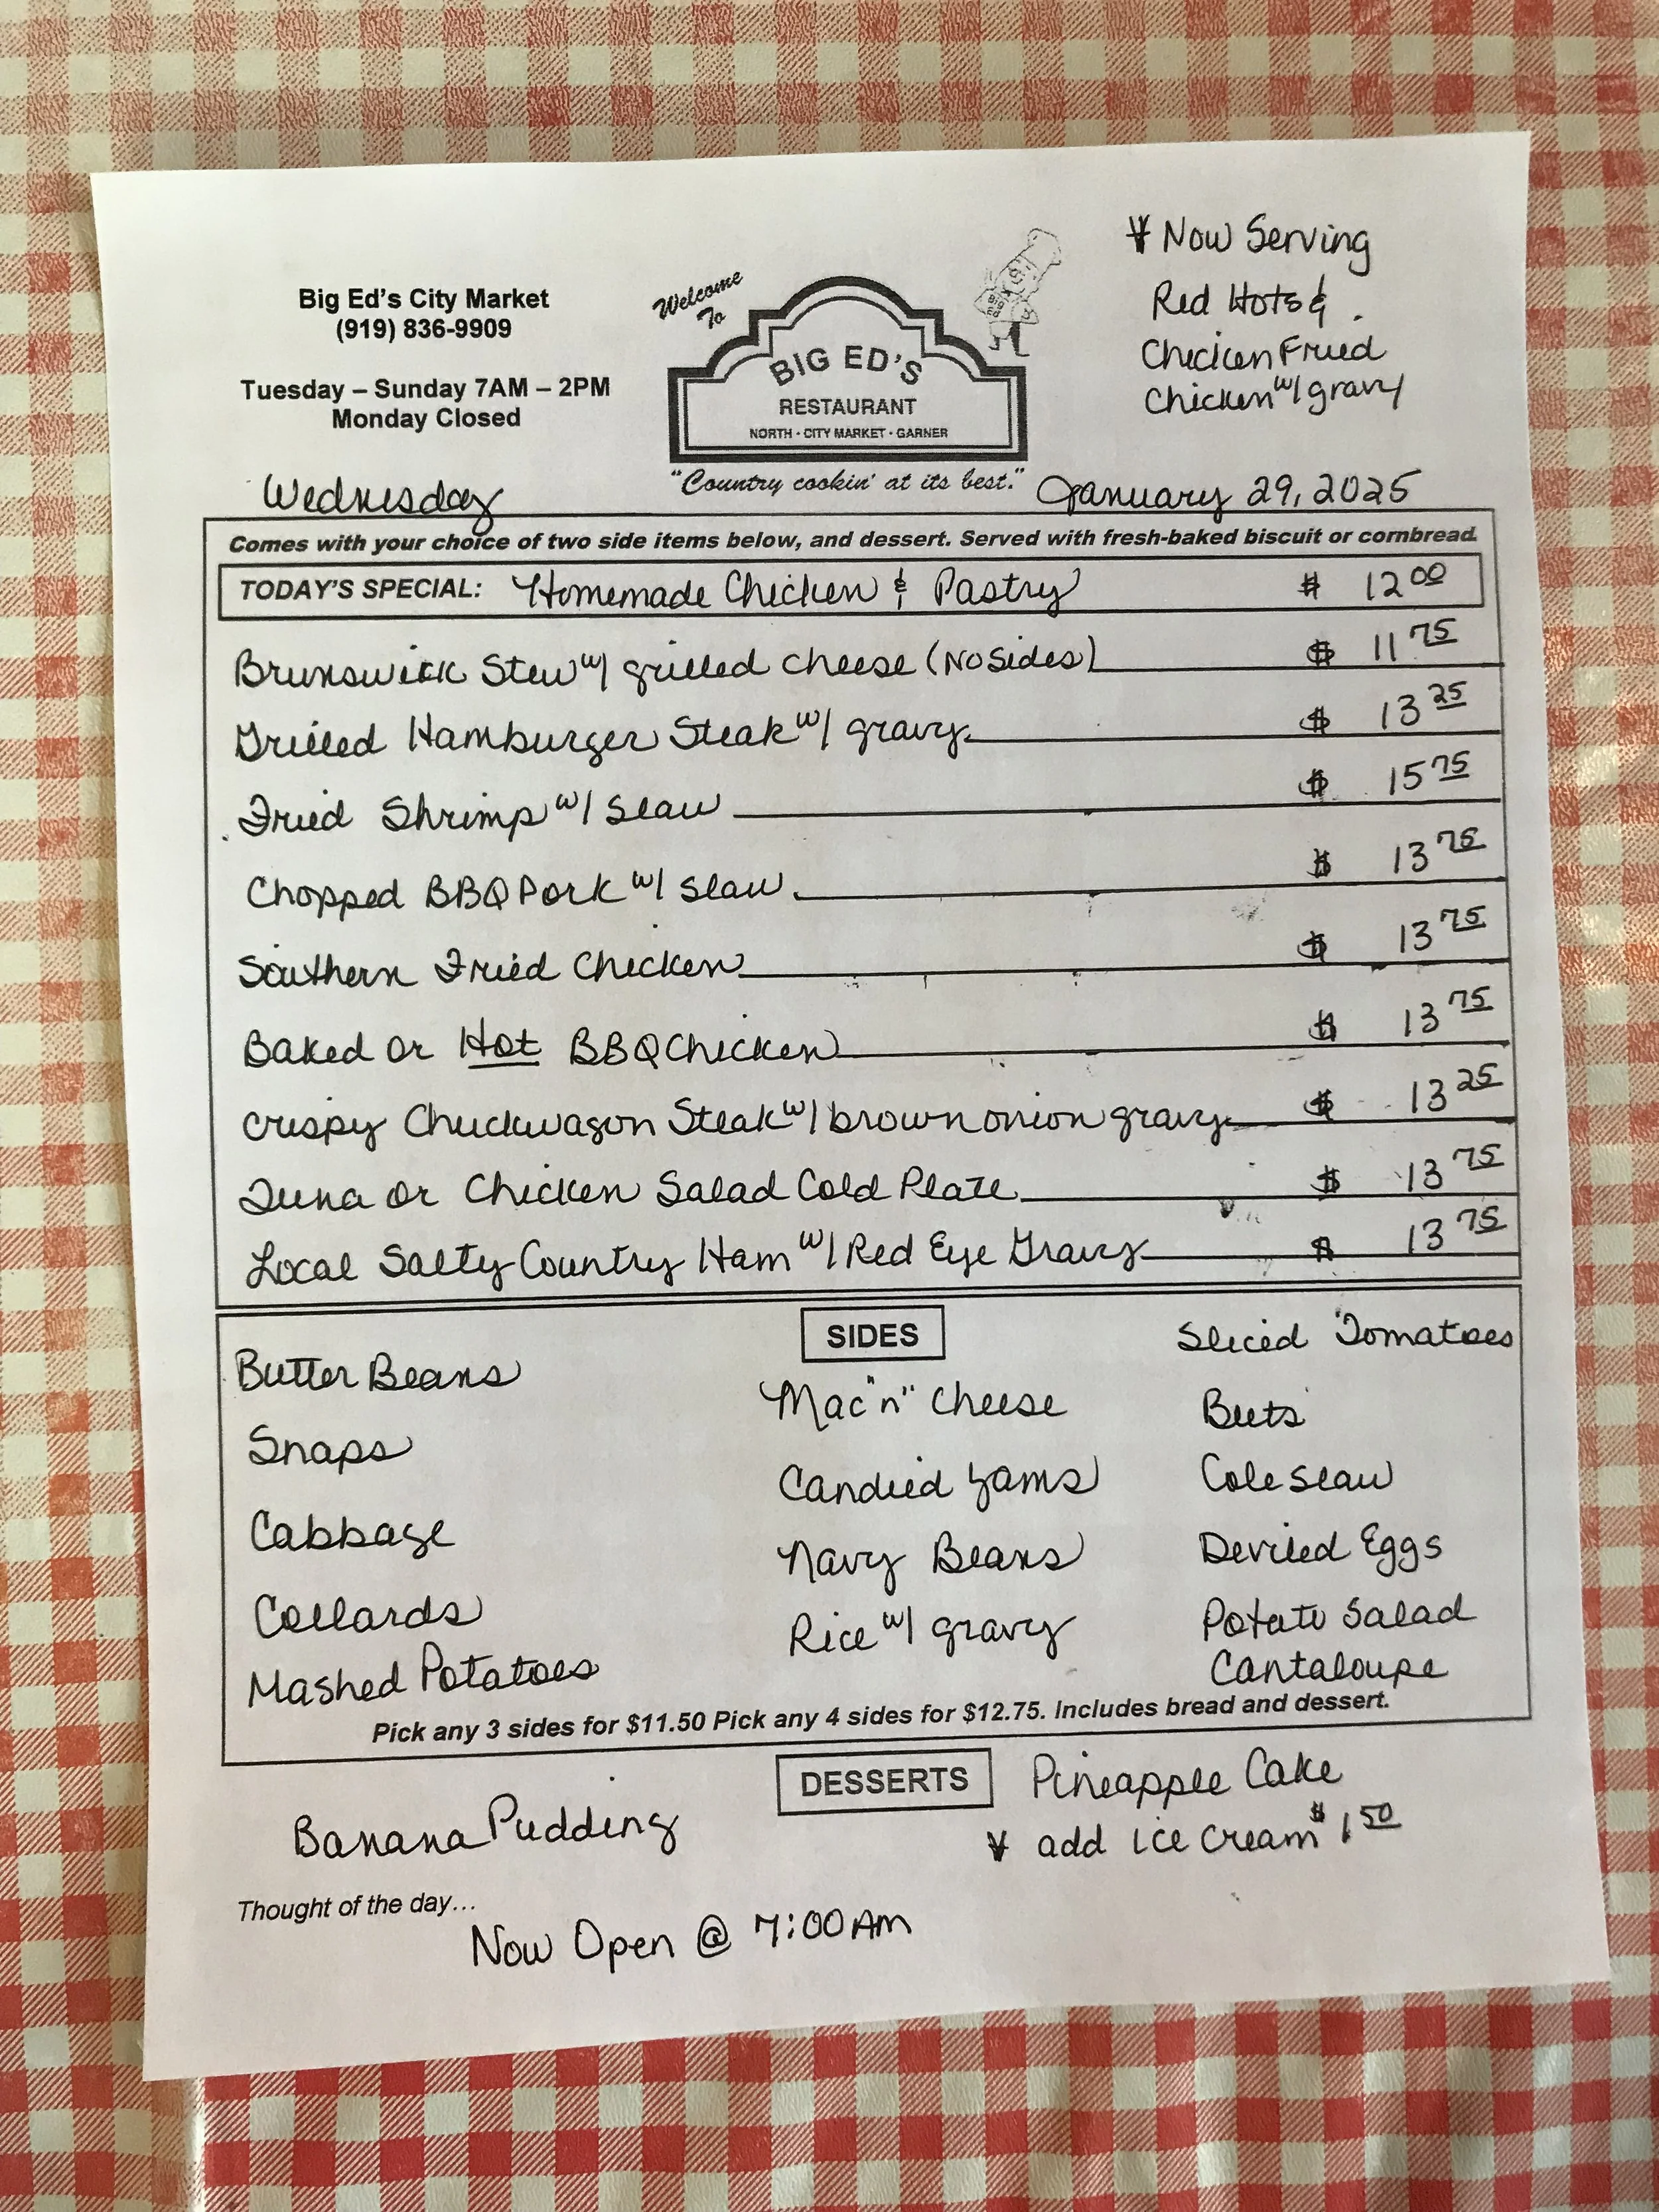 Big Ed's City Market
(919) 836-9909
Tuesday – Sunday 7AM – 2PM
Monday Closed
Welcome
To
Big Ed
BIG ED'S
RESTAURANT
NORTH · CITY MARKET · GARNER
"Country cookin' at its best."
* Now Serving
Red Hots &
Chicken Fried
Chicken w/ gravy
Wednesday
January 29, 2025
Comes with your choice of two side items below, and dessert. Served with fresh-baked biscuit or cornbread.
TODAY'S SPECIAL: Homemade Chicken & Pastry $ 12 00
Brunswick Stew w/ grilled cheese (No Sides) $ 11 75
Grilled Hamburger Steak w/ gravy $ 13 25
Fried Shrimp w/ slaw $ 15 75
Chopped BBQ Pork w/ slaw $ 13 75
Southern Fried Chicken $ 13 75
Baked or Hot BBQ Chicken $ 13 75
Crispy Chuckwagon Steak w/ brown onion gravy $ 13 25
Tuna or Chicken Salad Cold Plate $ 13 75
Local Salty Country Ham w/ Red Eye Gravy $ 13 75
SIDES
Butter Beans
Snaps
Cabbage
Collards
Mashed Potatoes
Mac "n" Cheese
Candied Yams
Navy Beans
Rice w/ gravy
Sliced Tomatoes
Beets
Cole slaw
Deviled Eggs
Potato Salad
Cantaloupe
Pick any 3 sides for $11.50 Pick any 4 sides for $12.75. Includes bread and dessert.
DESSERTS
Banana Pudding
Pineapple Cake
* add ice cream $ 1 50
Thought of the day…
Now Open @ 7:00 AM